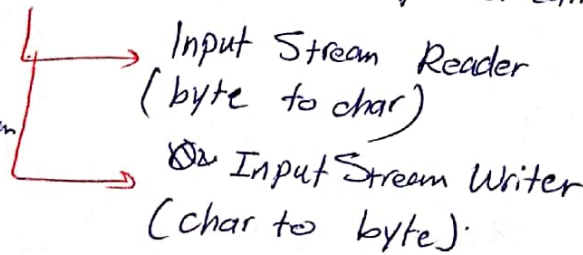 Input Stream Reader
(byte to char)
Input Stream Writer
(char to byte).